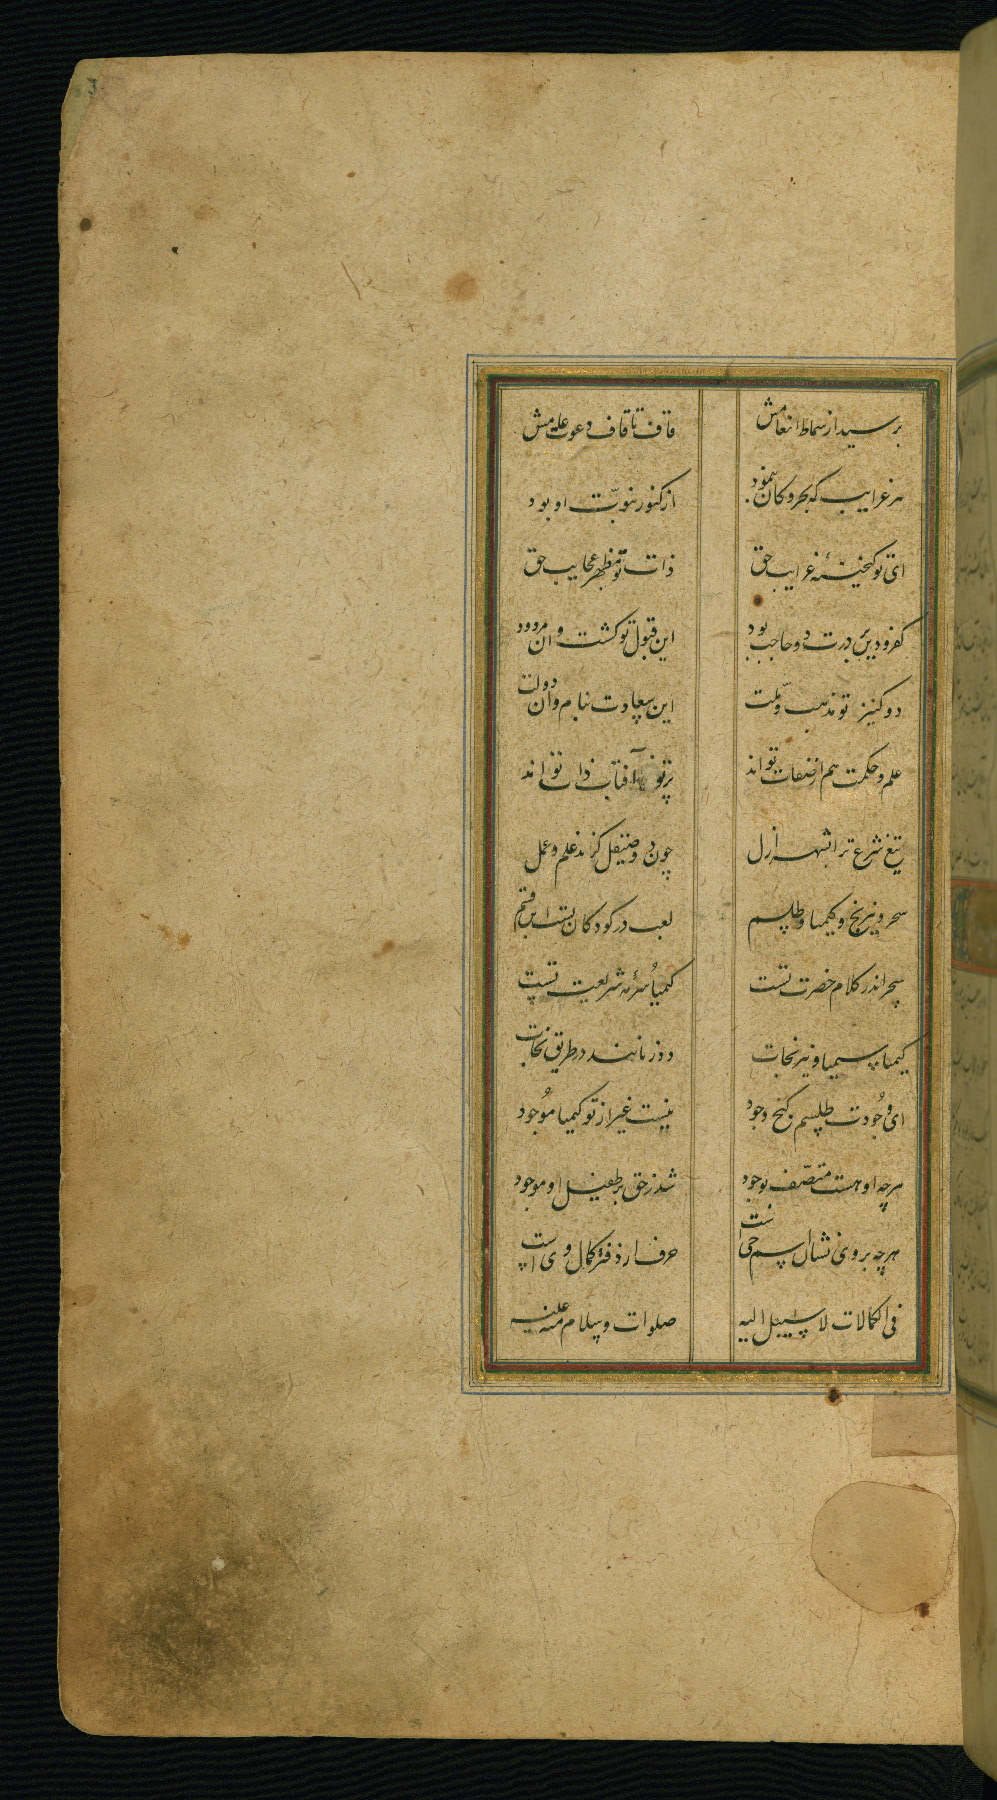 بر سید از سماط انعامش قاف تا قاف دعوت عامش
هر غرایب که بحر و کان بنمود از کنوز نبوّت او بود
ای تو گنجینهٔ غرایب حق ذات تو مظهر عجایب حق
کفر و دین بر درت دو حاجب بود این قبول تو گشت و آن مردود
دو کنیز تو مذهب و ملّت این سعادت بنام و آن دولت
علم و حکمت هم از صفات تواند پرتو آفتاب ذات تواند
تیغ شرع ترا شه ازل چون دو صیقل کزید علم و عمل
سحر و نیرنج و کیمیا و طلسم لعب در کودکان تست این قسم
سحر اندر کلام حضرت تست کیمیا سرمهٔ شریعت تست
کیمیا سیمیا و نیرنجات دو زنانند در طریق نجات
ای وجودت طلسم گنج وجود نیست غیر از تو کیمیا موجود
هرچه او هست متصّف بوجود شد ز حق بر طفیل او موجود
هرچه بر وی نشان اسم حی است حرفی از دفتر کمال وی است
فی الکمالات لا سبیل الیه صلوات و سلام منه علیه